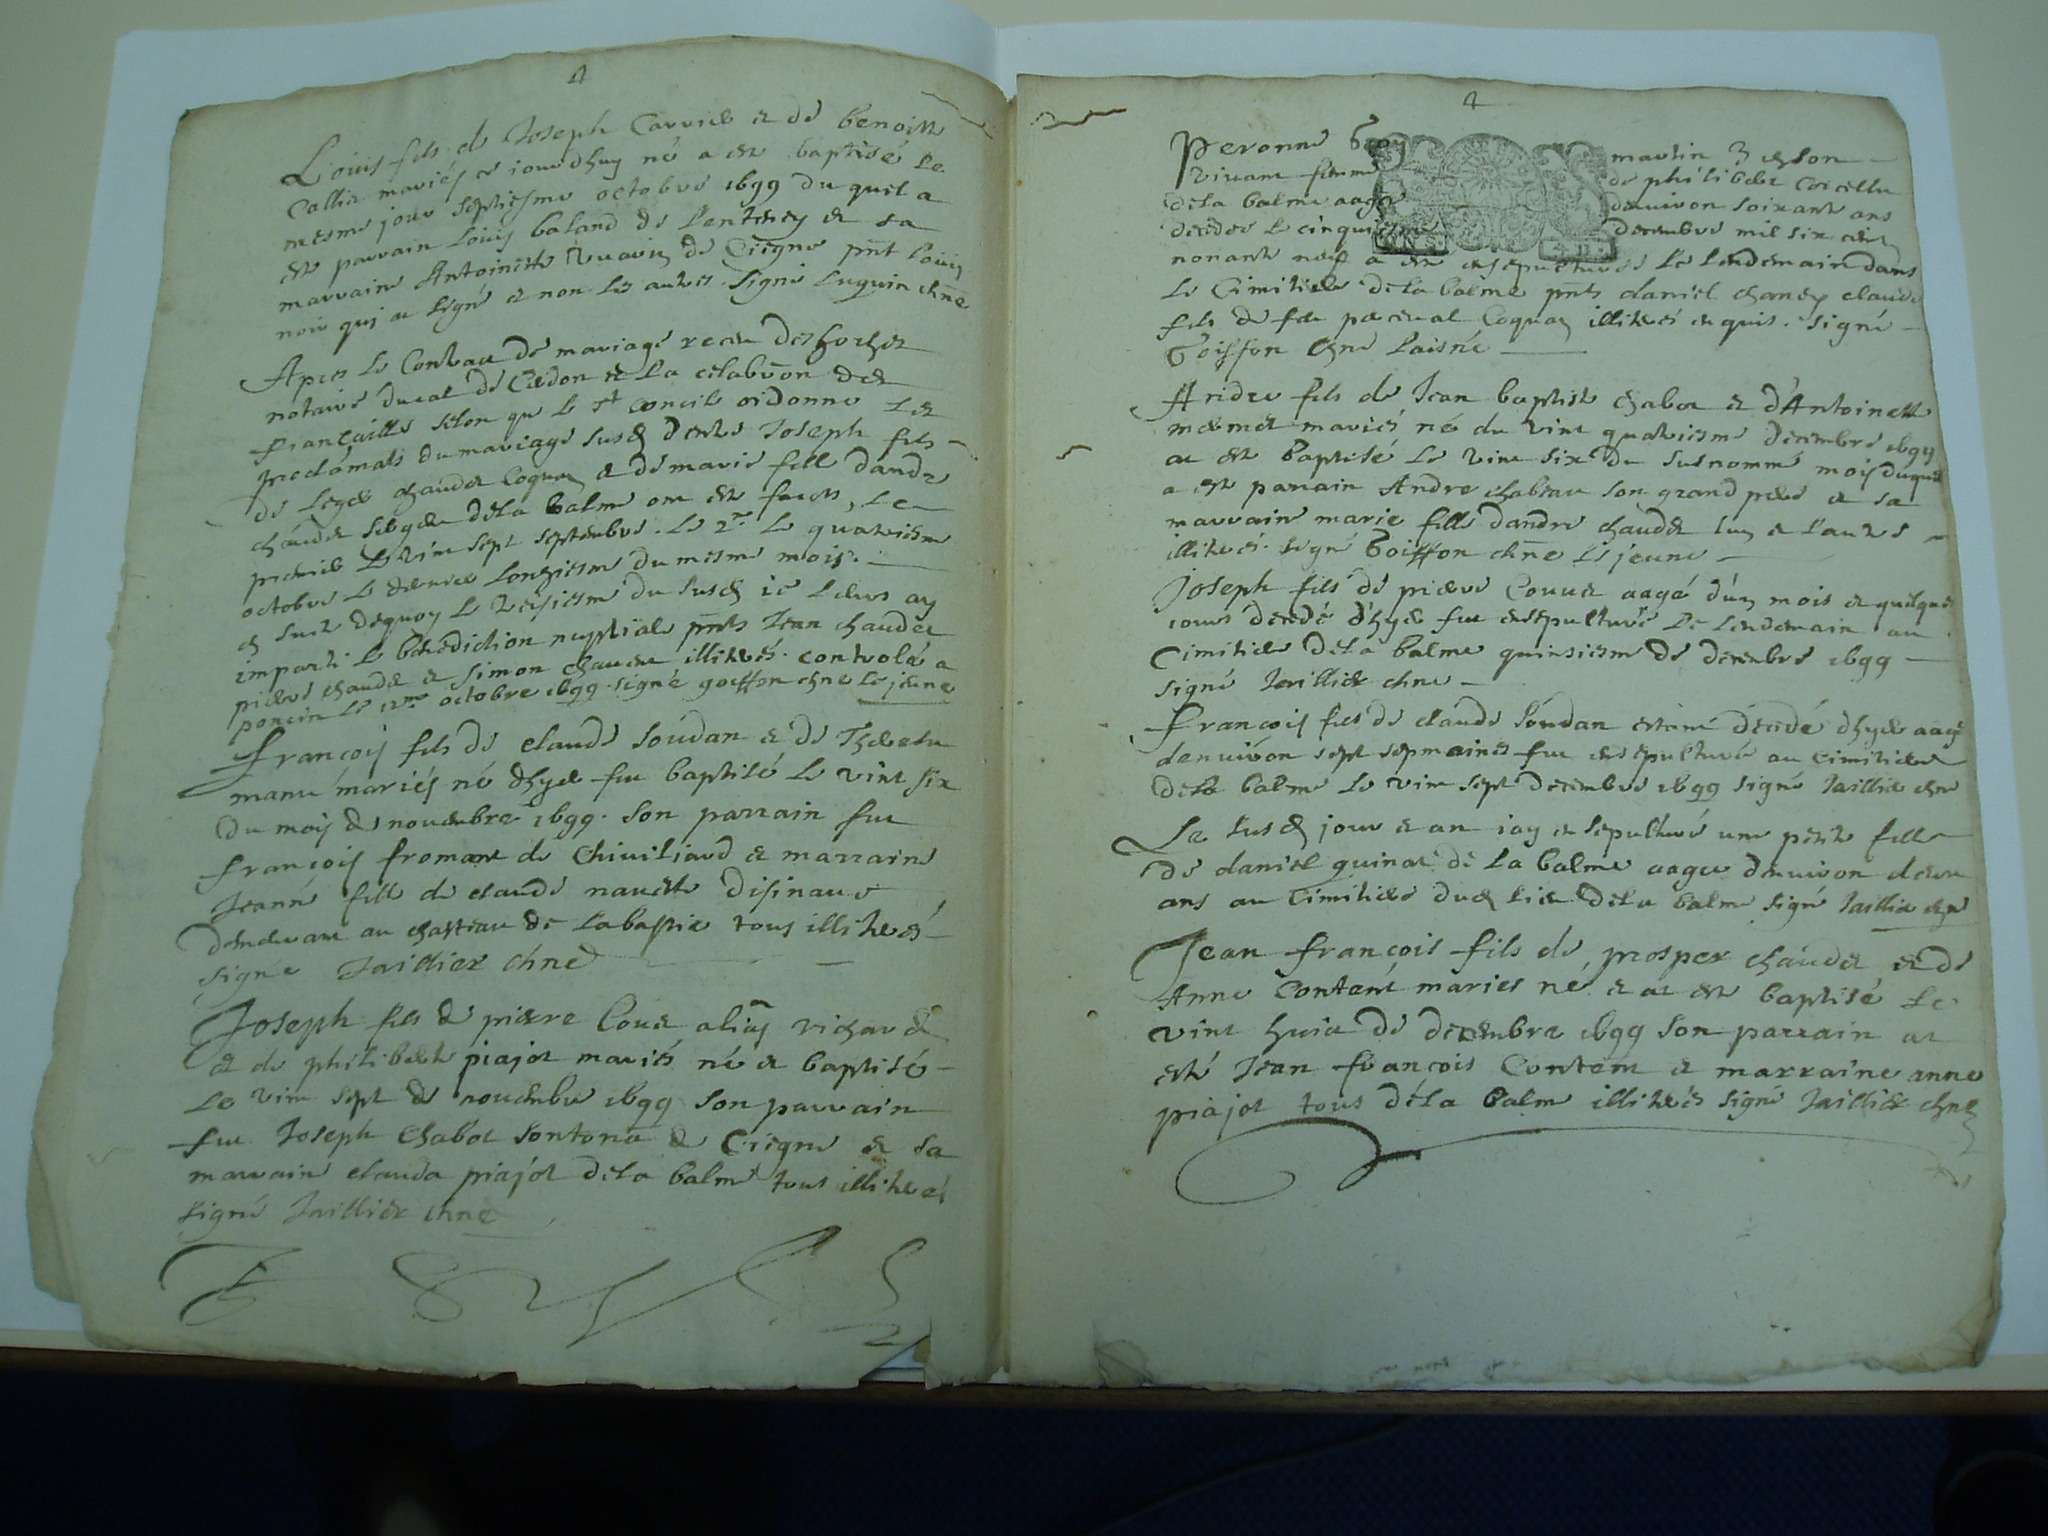 Louis fils de Joseph Carrier et de benoitte
Callier mariés ce jourdhuy né a esté baptisé le
mesme jour septiesme octobre 1699 du quel a
esté parrain Louis baland de et sa
marraine Antoinette de Ciegne pnt Louis
noir qui a signé et non les autres. Signé chne
Apres le Contract de mariage receu
notaire ducal de Cerdon et la celebron des
françailles selon que le st concile ordonne les
proclamats du mariage susd dentre Joseph fils
de leger chaudet Coquaz et de marie fille dandre
chaudet berger dela Balme ont esté faicts, le
premier le vint sept septembre. le 2me le quatriesme
octobre le dernier lonziesme du mesme mois.
en suite dequoy le du susd ie leurs ay
imparti le benediction nuptiale pnts Jean chaudet
pierre chaudet et Simon chaudet illiterés. controlé a
poncin le 12me octobre 1699. signé goiffon chne le jeune
François fils de claude Soudan et de
mariés né dhyer fut baptisé le vint six
du mois de nouembre 1699. Son parrain fut
François fromont de Chiviliard et marraine
Jeanne fille de claude navette disinaue
demeurant au chasteau de Labastie tous illiterés
signé Taillier chne
Joseph fils de pierre Couet alias richard
et de philiberte piajot mariés né et baptisé
le vint sept de nouembre 1699 son parrain
fut Joseph Chabot Sontona de Ciegne et sa
marraine clauda piajot dela balme tous illiterés
signé Taillier chne
Peronne martin 3 et son
vivant femme de philibert Corcelle
dela balme aagée denviron soixante ans
decedee le cinquiesme decembre mil six cent
nonante neuf a esté ensepulturée le lendemain dans
le Cimitiere dela balme pnts daniel chanex claude
fils de feu Coquaz illiterés enquis. signé
Goiffon chne laisné
Andre fils de Jean baptiste chabot et d'Antoinette
mermet mariés né du vint quatriesme decembre 1699
at esté baptisé le vint six du susnommé mois duquel
a esté parrain Andre chabeau son grand pere et sa
marraine marie fille dandre chaudet lun et l'autre
illiterés. signé Goiffon chne le jeune
Joseph fils de pierre Couuet aagé d'un mois et quelque
jours decedé d'hyer fut ensepulturé le lendemain au
Cimitiere dela balme quinsiesme de decembre 1699
signé Taillier chne
François fils de claude Soudan estant decedé dhyer aagé
denuiron sept sepmaines fut ensepulturé au Cimitiere
dela balme le vint sept decembre 1699 signé Taillier chne
Le susd jour et an jay ensepulturé une petite fille
de daniel guinat de la balme aagee denuiron deux
ans au Cimitiere dud lieu dela balme signé Taillier chne
Jean françois fils de prosper chaudet et de
Anne Contant mariés né et at esté baptisé le
vint huit de decembre 1699 son parrain at
esté Jean françois Content et marraine anne
piajot tous dela balme illiterés signé Taillier chne